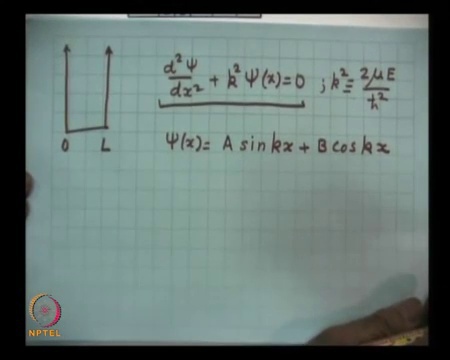 d²Ψ/dx² + k² Ψ(x) = 0 ; k² ≡ 2μE/ħ²
Ψ(x) = A sin kx + B cos kx
0 L
NPTEL